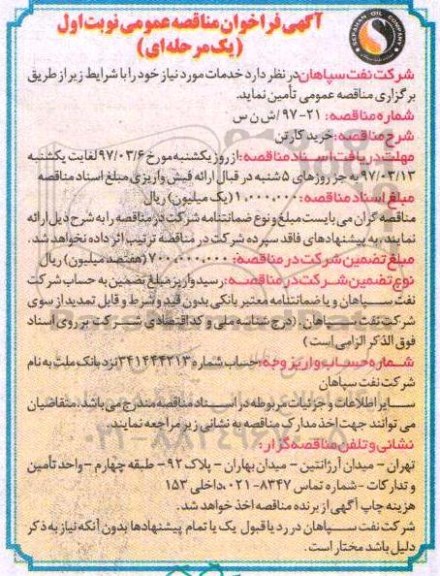 آگهی فراخوان مناقصه عمومی نوبت اول
(یک مرحله‌ای)
SEPAHAN OIL COMPANY
شرکت نفت سپاهان در نظر دارد خدمات مورد نیاز خود را با شرایط زیر از طریق
برگزاری مناقصه عمومی تأمین نماید.
شماره مناقصه: ۲۱-۹۷/ش ن س
شرح مناقصه: خرید کارتن
مهلت دریافت اسناد مناقصه: از روز یکشنبه مورخ ۹۷/۰۳/۶ لغایت یکشنبه
۹۷/۰۳/۱۳ به جز روزهای ۵شنبه در قبال ارائه فیش واریزی مبلغ اسناد مناقصه
مبلغ اسناد مناقصه: ۱،۰۰۰،۰۰۰ (یک میلیون) ریال
مناقصه گران می بایست مبلغ و نوع ضمانتنامه شرکت در مناقصه را به شرح ذیل ارائه
نمایند، به پیشنهادهای فاقد سپرده شرکت در مناقصه ترتیب اثر داده نخواهد شد.
مبلغ تضمین شرکت در مناقصه: ۷۰۰،۰۰۰،۰۰۰ (هفتصد میلیون) ریال
نوع تضمین شرکت در مناقصه: رسید واریز مبلغ تضمین به حساب شرکت
نفت سپاهان و یا ضمانتنامه معتبر بانکی بدون قید و شرط و قابل تمدید از سوی
شرکت نفت سپاهان. (درج شناسه ملی و کد اقتصادی شرکت بر روی اسناد
فوق الذکر الزامی است)
شماره حساب واریز وجه: حساب شماره ۳۴۱۴۴۴۲۱۳ نزد بانک ملت به نام
شرکت نفت سپاهان
سایر اطلاعات و جزئیات مربوطه در اسناد مناقصه مندرج می باشد. متقاضیان
می توانند جهت اخذ مدارک مناقصه به نشانی زیر مراجعه نمایند.
نشانی و تلفن مناقصه گزار:
تهران - میدان آرژانتین - میدان بهاران - پلاک ۹۲- طبقه چهارم - واحد تأمین
و تدارکات - شماره تماس ۸۳۴۷-۰۲۱، داخلی ۱۵۳
هزینه چاپ آگهی از برنده مناقصه اخذ خواهد شد.
شرکت نفت سپاهان در رد یا قبول یک یا تمام پیشنهادها بدون آنکه نیاز به ذکر
دلیل باشد مختار است.